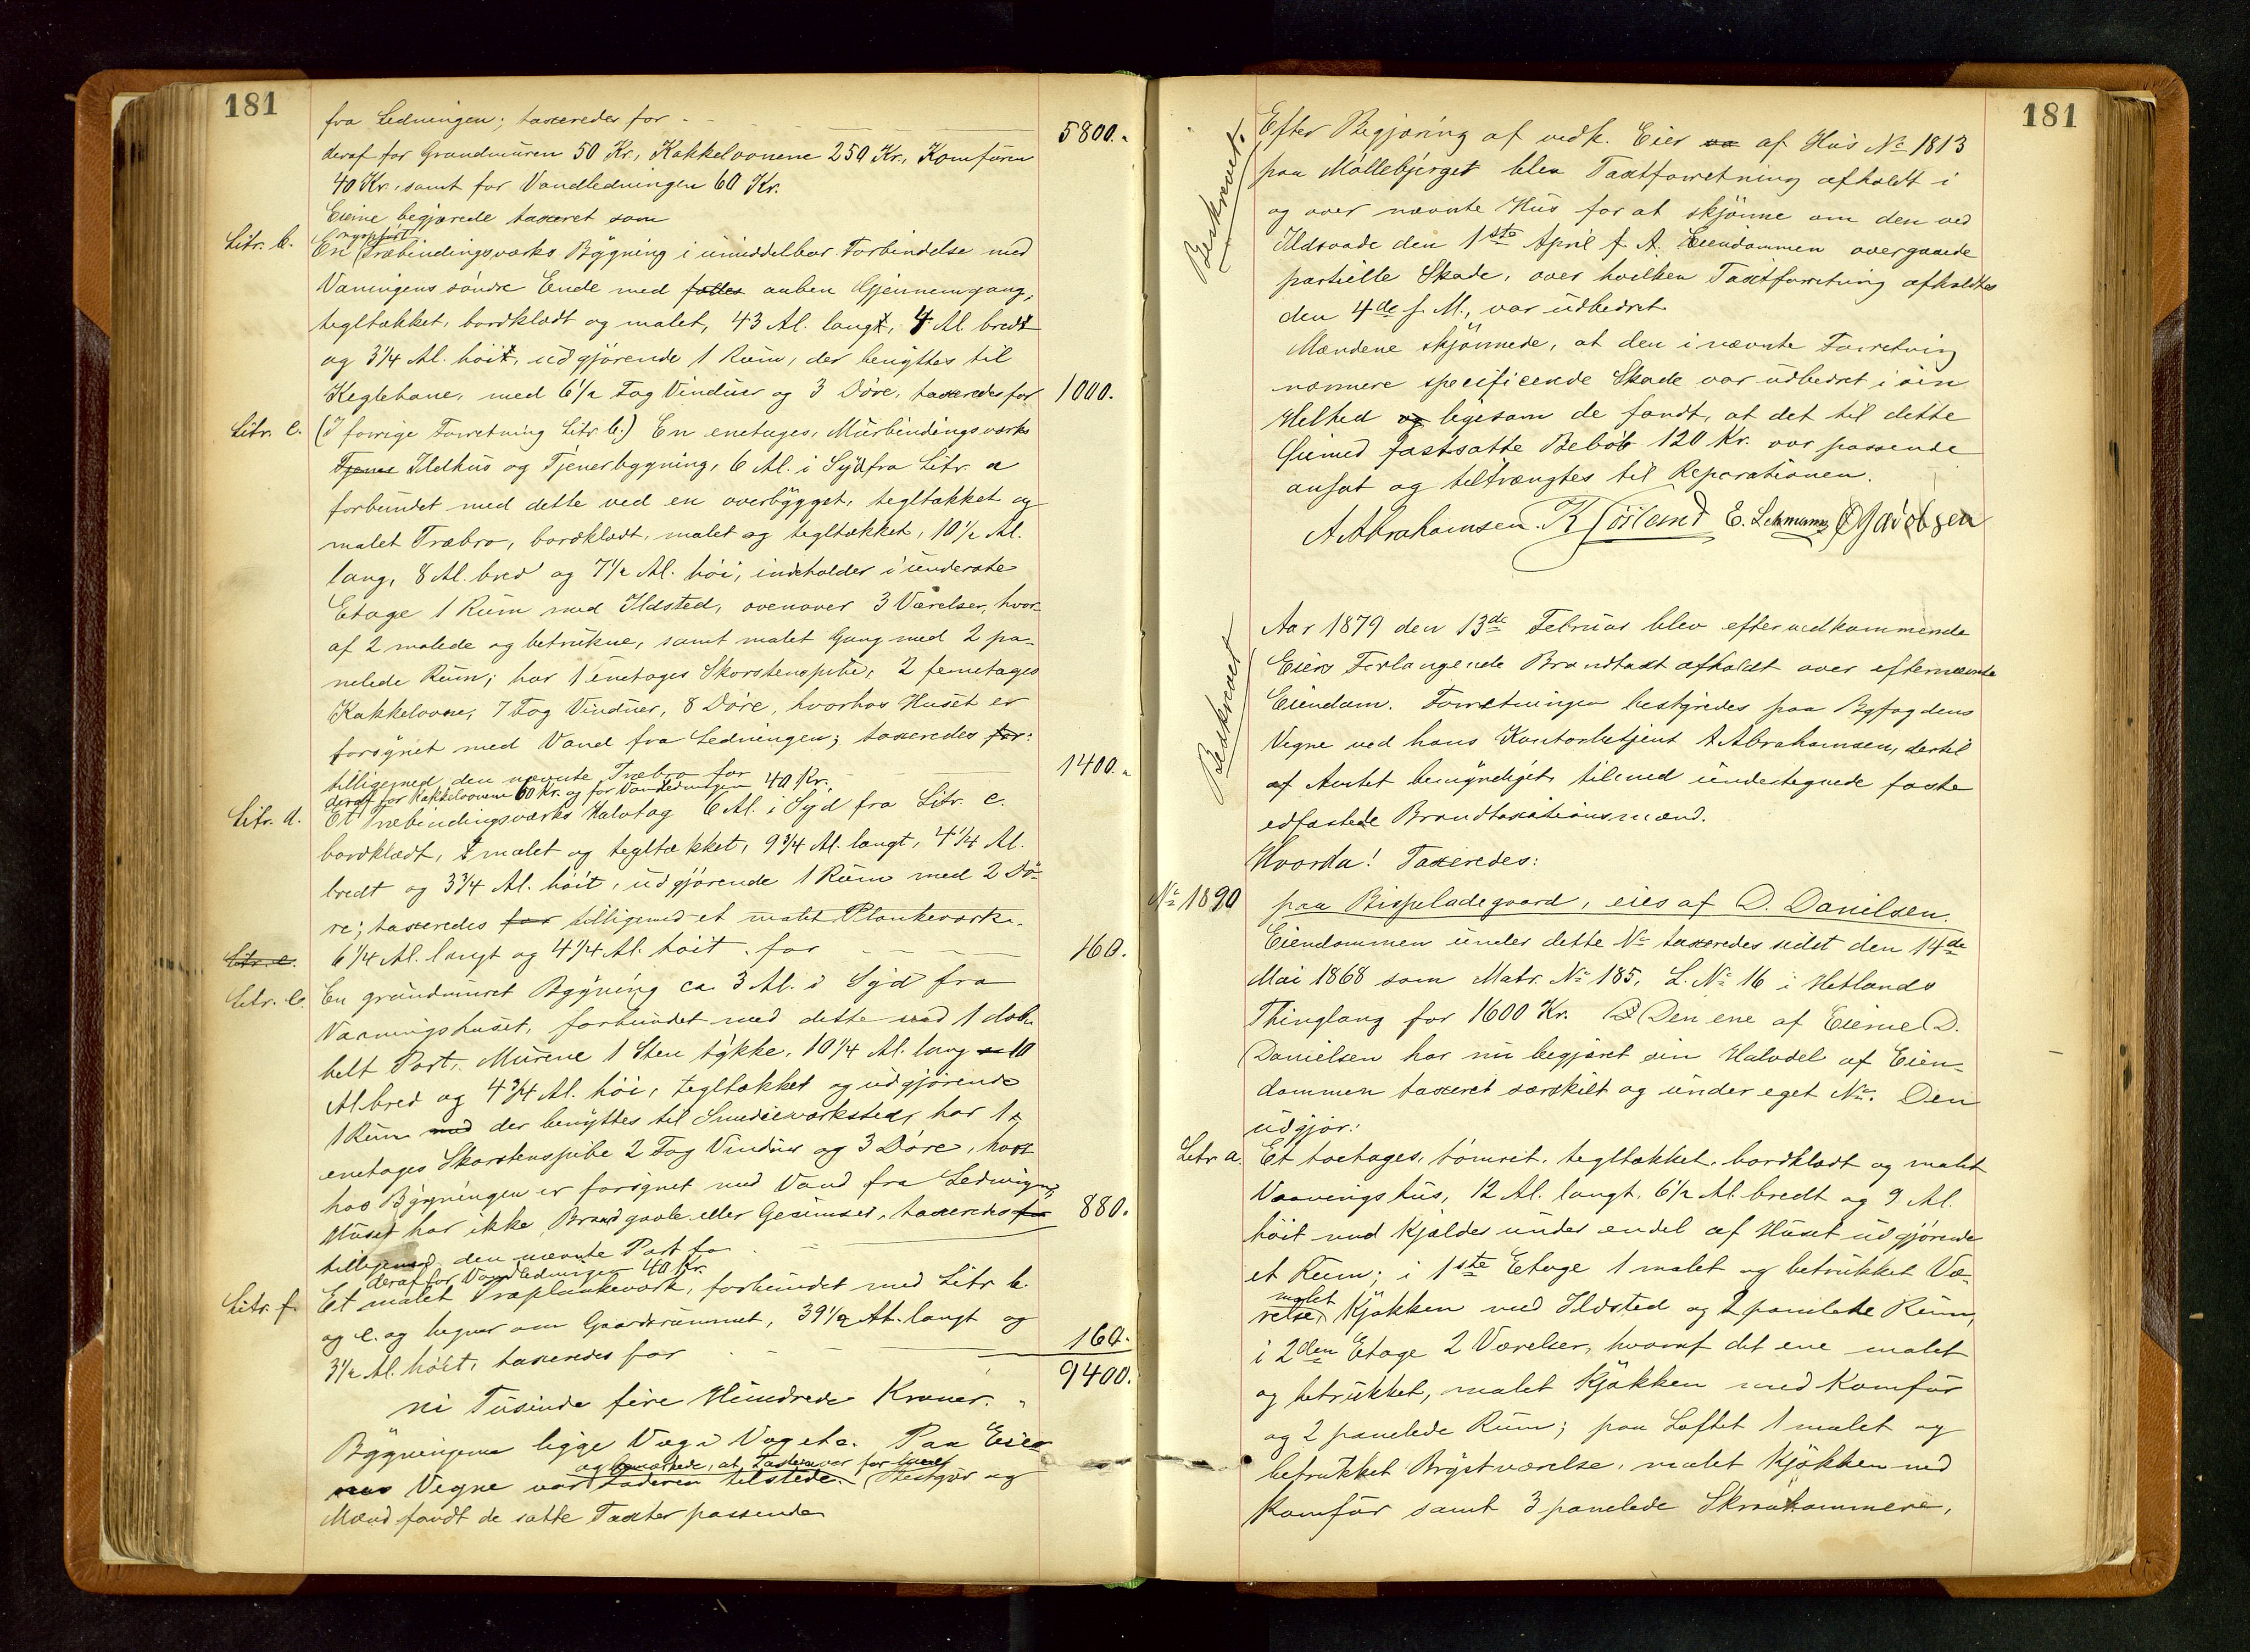 181
fra Ledningen; taxeredes for - - - 5800.-
deraf for Grundmuren 50 Kr., Kakkelovnene 250 Kr., Komfuren
40 Kr. samt for Vandledningen 60 Kr.
Eierne begjærede taxeret som
nyopført
Litr. b. En Træbindingsværks Bygning i umiddelbar Forbindelse med
Vaningens søndre Ende med fælles aaben Gjennemgang,
tegltækket, bordklædt og malet, 43 Al. langt, 4 Al. bredt
og 3 1/4 Al. høit, udgjørende 1 Rum, der benyttes til
Keglebane, med 6 1/2 Fag Vinduer og 3 Døre, taxeredes for 1000.
Litr. c. (I forrige Forretning Litr. b.) En enetages, Murbindingsværks
Tjener Ildhus og Tjenerbygning, 6 Al. i Syd fra Litr. a
forbundet med dette ved en overbygget, tegltækket og
malet Træbro, bordklædt, malet og tegltækket, 10 1/2 Al.
lang, 8 Al. bred og 7 1/2 Al. høi, indeholder i underste
Etage 1 Rum med Ildsted, ovenover 3 Værelser, hvor-
af 2 malede og betrukne, samt malet Gang med 2 pa-
nelede Rum; har 1 enetages Skorstenspibe, 2 femetages
Kakkelovne, 7 Fag Vinduer, 8 Døre, hvorhos Huset er
forsynet med Vand fra Ledningen; taxeredes for:
tilligemed den nævnte Træbro for - 1400.-
deraf for Kakkelovnene 60 Kr. og for Vandledningen 40 Kr.
Litr. d. Et Træbindingsværks Halvtag 6 Al. i Syd fra Litr. c.
bordklædt, malet og tegltækket, 9 3/4 Al. langt, 4 1/4 Al.
bredt og 3 3/4 Al. høit, udgjørende 1 Rum med 2 Dø-
re; taxeredes for tilligemed et malet Plankeværk
Litr. e. 6 1/4 Al. langt og 4 1/4 Al. høit for - - - 160.
Litr. e. En grundmuret Bygning ca 3 Al. i Syd fra
Vaaningshuset, forbundet med dette ved 1 dob-
belt Port, Murene 1 Sten tykke, 10 1/4 Al. lang 10
Al. bred og 4 3/4 Al. høi, tegltækket og udgjørende
1 Rum med der benyttes til Smedieværksted, har 1
enetages Skorstenspibe 2 Fag Vinduer og 3 Døre, hvor
hos Bygningen er forsynet med Vand fra Ledningen,
Huset har ikke Brandgavle eller Gesimser, taxeredes for 880.
tilligemed den nævnte Port for
deraf for Vandledningen 40 Kr.
Litr. f. Et malet Træplankeværk, forbundet med Litr. b.
og e. og hegner om Gaardsrummet, 39 1/2 Al. langt og
3 1/2 Al. høit, taxeredes for - - - 160.
9400.
ni Tusinde fire Hundrede Kroner.
Bygningerne ligge Vaga Vagets. Paa Eier
nes Vegne var Faderen tilstede. Bestyr og
Mænd fandt de satte Taxter passende
181
Beskrevet.
Efter Begjæring af vedk. Eier va af Hus No 1813
paa Møllebjerget blev Taxtforretning afholdt i
og over nævnte Hus for at skjønne om den ved
Ildsvaade den 1ste April f. A. Eiendommen overgaaede
partielle Skade, over hvilken Taxtforretning afholdtes
den 4de f. M., var udbedret.
Mændene skjønnede, at den i nævnte Forretning
nærmere specificerede Skade var udbedret i sin
Helhed og ligesom de fandt, at det til dette
Øiemed fastsatte Beløb 120 Kr. var passende
ansat og tiltrængtes til Reparationen.
A Abrahamsen. K Josland E. Lehmann O Jacobsen
Beskrevet
Aar 1879 den 13de Februar blev efter vedkommende
Eiers Forlangende Brandtaxt afholdt over efternævnte
Eiendom. Forretningen bestyredes paa Byfogdens
Vegne ved hans Kontorbetjent A Abrahamsen, dertil
af Amtet bemyndiget, tilmed undertegnede faste
edfæstede Brandtaxationsmænd.
Hvorda! Taxeredes:
No 1890 paa Bispeladegaard, eies af D. Danielsen.
Eiendommen under dette No taxeredes sidst den 14de
Mai 1868 som Matr. No 185, L. No 16 i Hetlands
Thinglaug for 1600 Kr. Den ene af Eierne D.
Danielsen har nu begjæret sin Halvdel af Eien-
dommen taxeret særskilt og under eget No. Den
udgjør:
Litr a. Et toetages, tømret, tegltækket, bordklædt og malet
Vaaningshus, 12 Al. langt, 6 1/2 Al. bredt og 9 Al.
høit med Kjelder under endel af Huset udgjørende
et Rum; i 1ste Etage 1 malet og betrukket Væ-
malet
relse, Kjøkken med Ildsted og 2 panelede Rum,
i 2den Etage 2 Værelser, hvoraf det ene malet
og betrukket, malet Kjøkken med Komfur
og 2 panelede Rum; paa Loftet 1 malet og
betrukket Brystværelse, malet Kjøkken med
Komfur samt 3 panelede Skraakammere,